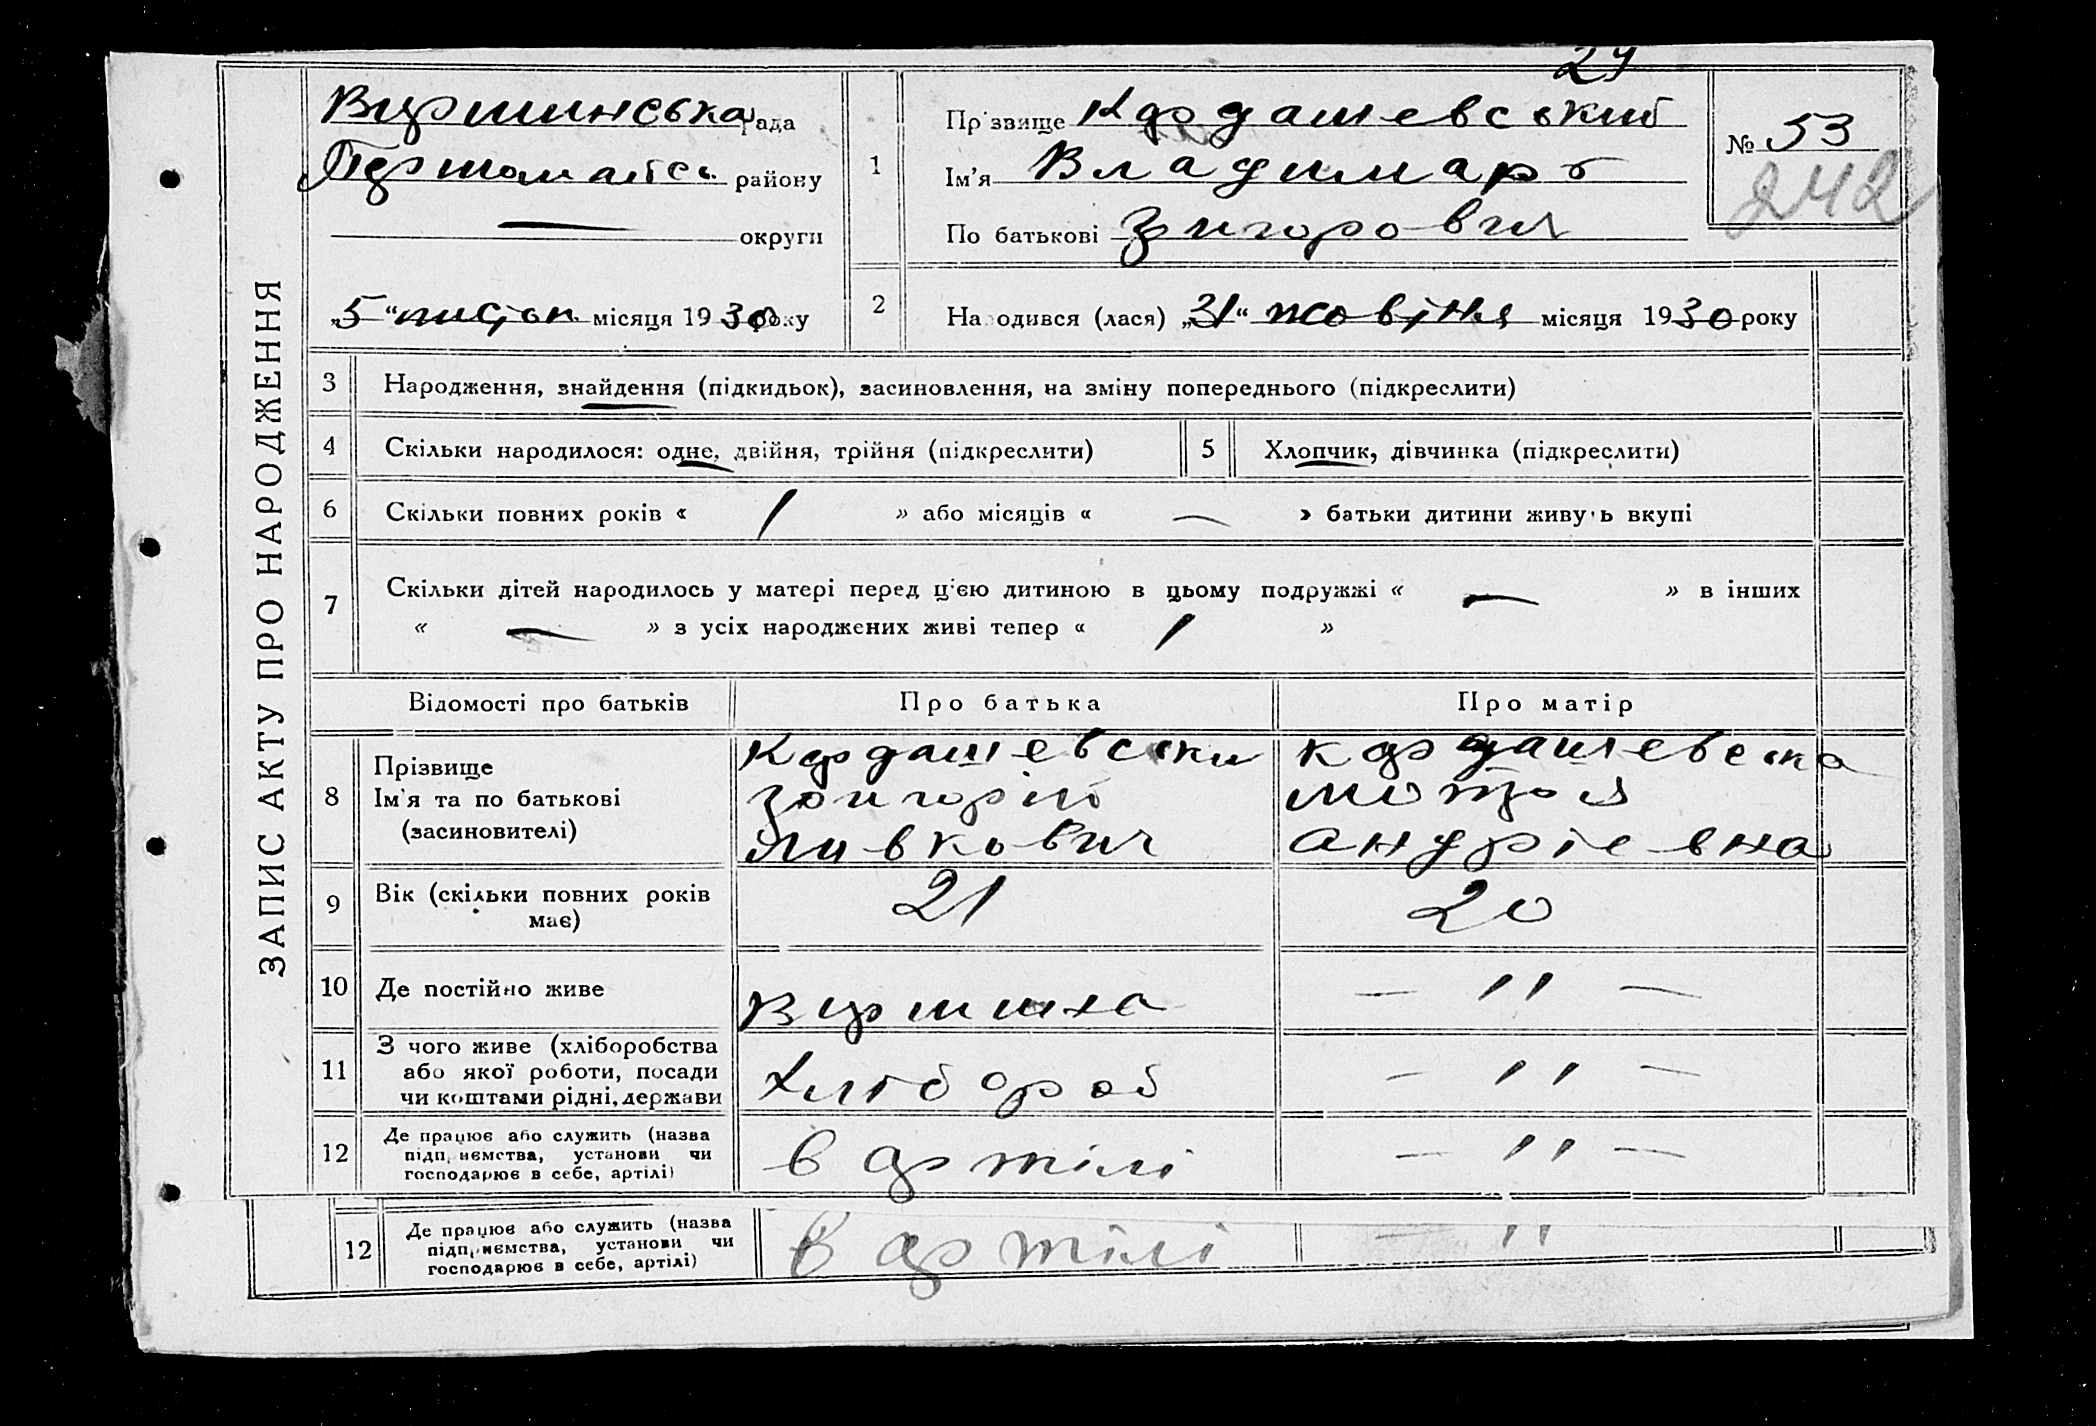 24
ЗАПИС АКТУ ПРО НАРОДЖЕННЯ
Вершинська рада
Першомайськ району
округи
„5“ листоп. місяця 1930 року
1
Прізвище Кардашевський
Ім’я Владимиръ
По батькові
№ 53
242
2
Народився (лася) „31“ жовтня місяця 1930 року
3 Народження, знайдення (підкидьок), засиновлення, на зміну попереднього (підкреслити)
4 Скільки народилося: одне, двійня, трійня (підкреслити) 5 Хлопчик, дівчинка (підкреслити)
6 Скільки повних років « 1 » або місяців « — » батьки дитини живуть вкупі
7 Скільки дітей народилось у матері перед ц’єю дитиною в цьому подружжі « — » в інших
« — » з усіх народжених живі тепер « 1 »
Відомості про батьків Про батька Про матір
8 Прізвище
Ім’я та по батькові
(засиновителі)
Кардашевськи
Кардашевська
Мотря
Андріевна
9 Вік (скільки повних років
має)
21 20
10 Де постійно живе Вершина — " —
11 З чого живе (хліборобства
або якої роботи, посади
чи коштами рідні, держави
Хлібороб — " —
12 Де працює або служить (назва
підприємства, установи чи
господарює в себе, артілі)
в артілі — " —
12 Де працює або служить (назва
підприємства, установи чи
господарює в себе, артілі)
в артілі — "